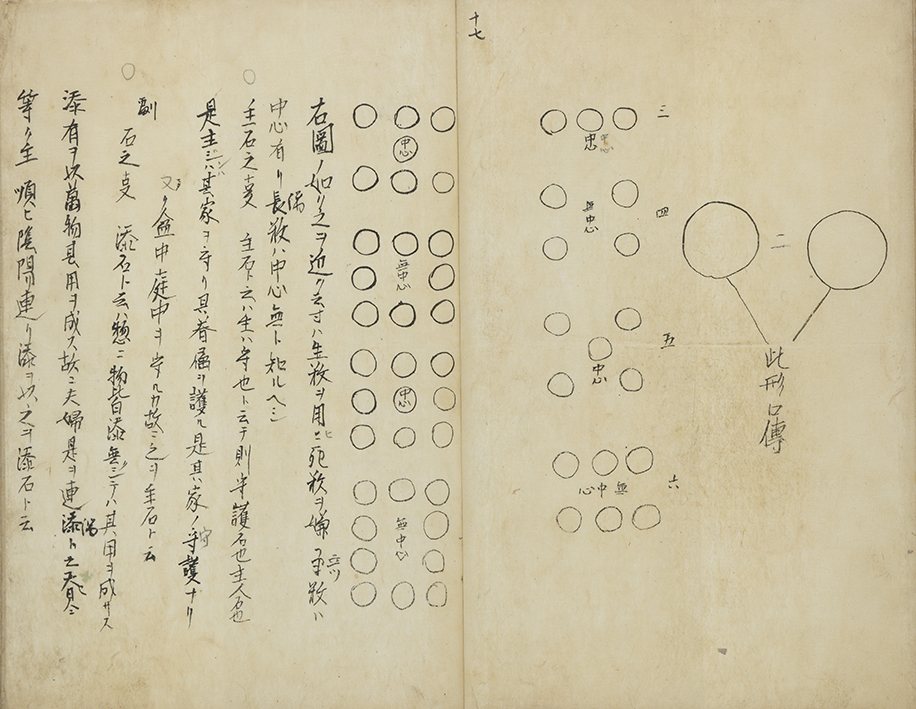 十七
二
此形口傳
三
中心
忠
四
無中心
五
中心
六
無中心
忠
無中心
中心
無中心
右圖ノ如リ之ヲ近ク云寸ハ生数ヲ用ヒ死数ヲ嫌
中心有リ長数ハ中心無ト知ルヘシ
主石之支 主石ト云ハ主ハ守也ト云テ則守護石也主人石也
是主ハ其家ヲ守リ其眷属ヲ護ル是其家ノ守護ナリ
又ク人盆中庭中ヲ守ル力故ニ之ヲ主石ト云
副
石之支 添石ト云ハ惣ニ物皆添無シテハ其用ヲ成サス
添有ヲ以萬物其用ヲ成ス故ニ夫婦是ヲ連添ト云
等ク主 順ヒ陰陽連リ添ヲ以之ヲ添石ト云